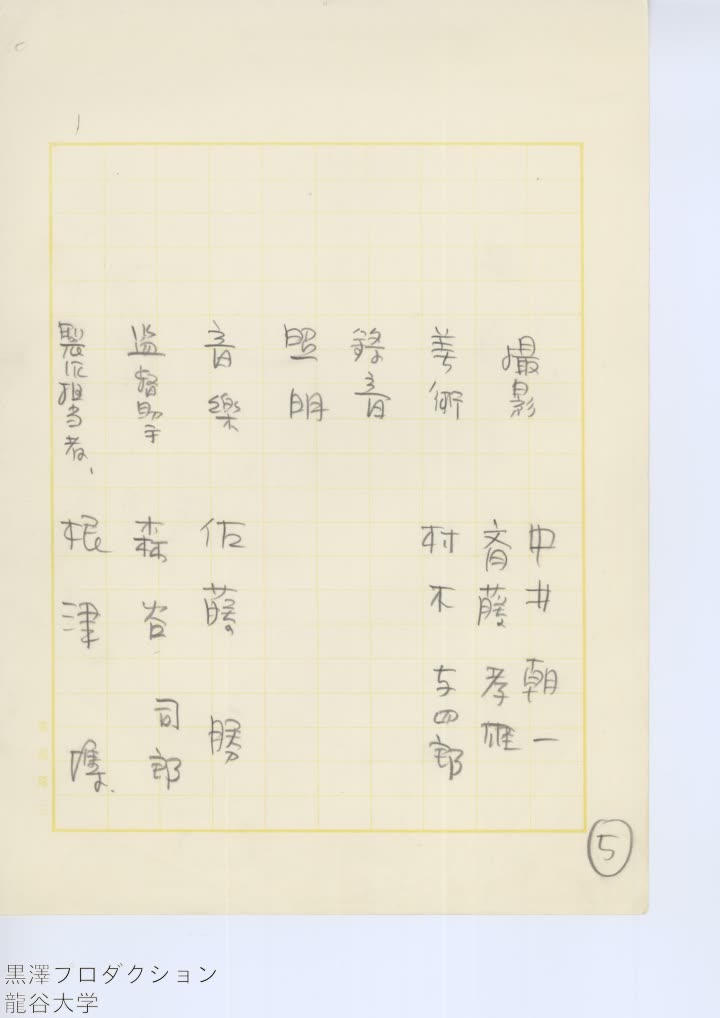 撮影 中井朝一
斉藤孝雄
美術 村木与四郎
録音
照明
音樂 佐藤 勝
監督助手 森谷司郎
製作担当者、根津 博.
⑤
黒澤プロダクション
龍谷大学